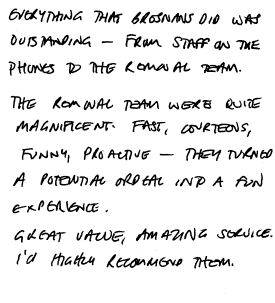 EVERYTHING THAT BROSNANS DID WAS
OUTSTANDING – FROM STAFF ON THE
PHONES TO THE REMOVAL TEAM.
THE REMOVAL TEAM WERE QUITE
MAGNIFICENT. FAST, COURTEOUS,
FUNNY, PROACTIVE – THEY TURNED
A POTENTIAL ORDEAL INTO A FUN
EXPERIENCE.
GREAT VALUE, AMAZING SERVICE.
I'D HIGHLY RECOMMEND THEM.